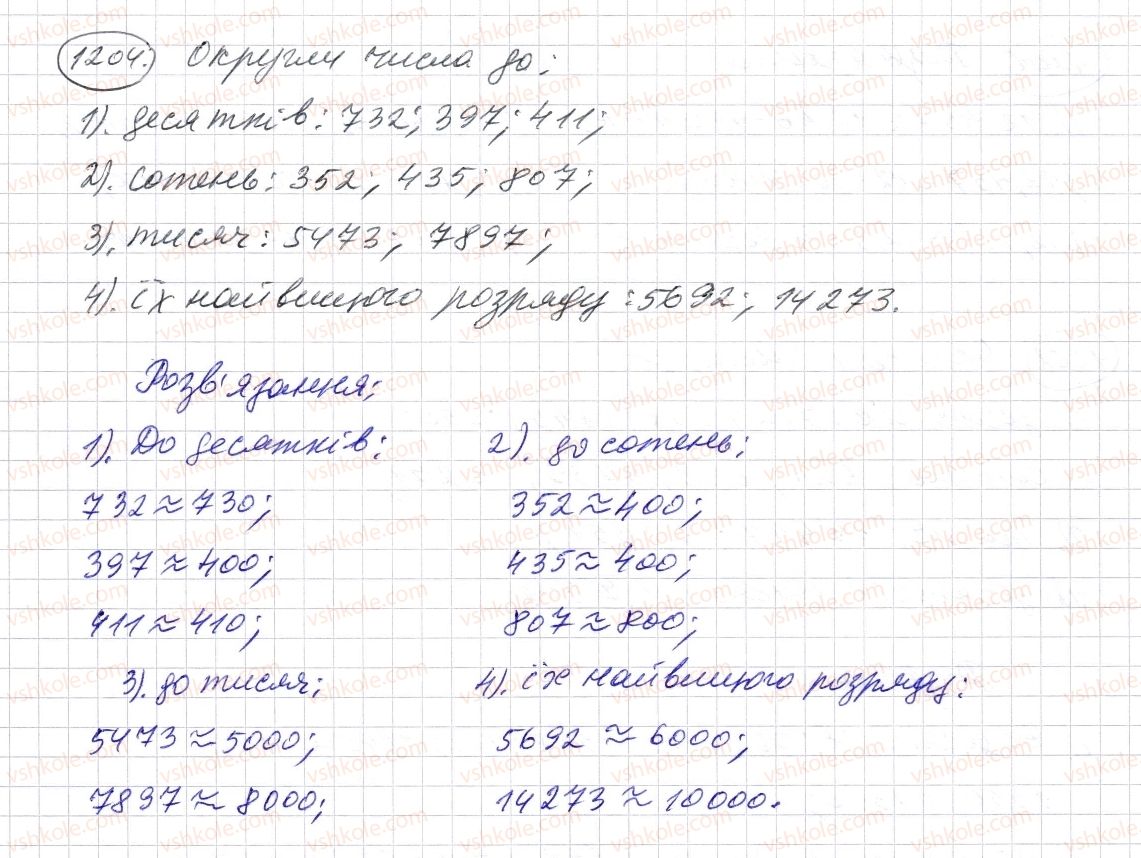 1204. Округли числа до:
1). десятків: 732; 397; 411;
2). сотень: 352; 435; 807;
3). тисяч: 5473; 7897;
4). їх найвищого розряду: 5692; 14273.
Розв'язання;
1). До десятків:
732 ≈ 730;
397 ≈ 400;
411 ≈ 410;
2). до сотень;
352 ≈ 400;
435 ≈ 400;
807 ≈ 800;
3). до тисяч;
5473 ≈ 5000;
7897 ≈ 8000;
4). їх найвищого розряду:
5692 ≈ 6000;
14273 ≈ 10000.